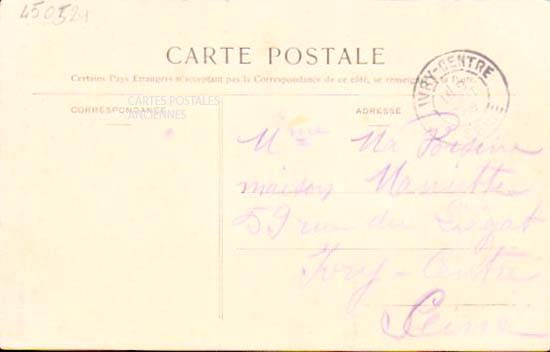 450529
CARTE POSTALE
Certains Pays Etrangers n'acceptant pas la Correspondance de ce côté, se renseigner à la Poste
CORRESPONDANCE
CARTES POSTALES
ANCIENNES
ADRESSE
IVRY-CENTRE
Mme
maison Mariette
59 rue du
Ivry-Centre
Seine